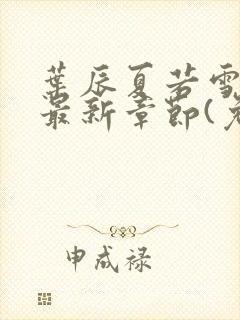 葉辰夏若雪
最新章節(免
申成禄